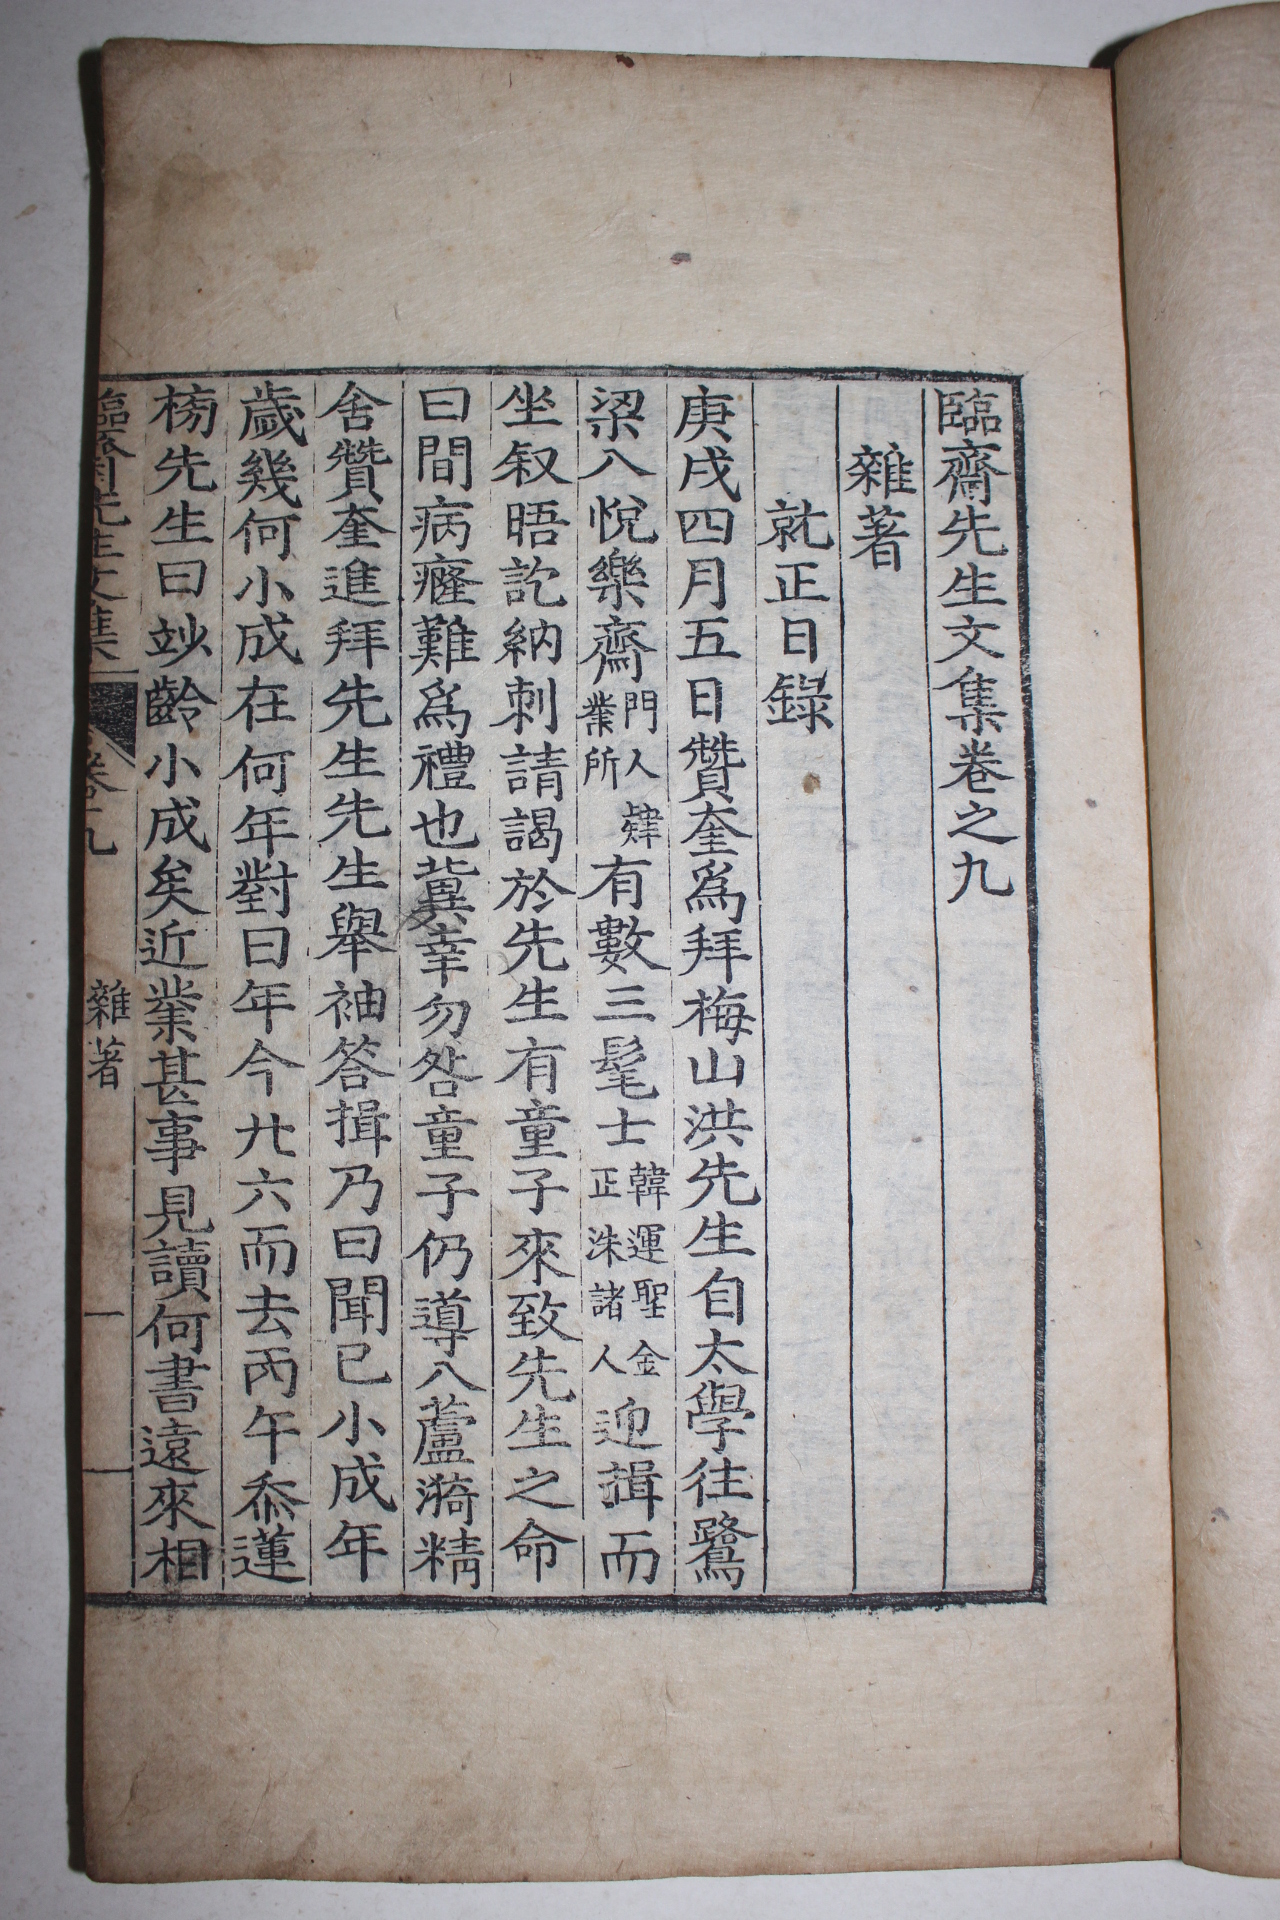 臨齋先生文集卷之九
雜著
就正日錄
庚戌四月五日贊奎爲拜梅山洪先生自太學往鷺
梁入悅樂齋門人肄業所有數三髦士韓運聖金正洙諸人迎揖而
坐叙晤訖納刺請謁於先生有童子來致先生之命
曰間病癃難爲禮也冀幸勿咎童子仍導入蘆漪精
舍贊奎進拜先生先生舉袖答揖乃曰聞已小成年
歲幾何小成在何年對曰年今廾六而去丙午忝蓮
榜先生曰玅齡小成矣近業甚事見讀何書遠來相
臨齋先生文集 卷之九 雜著 一